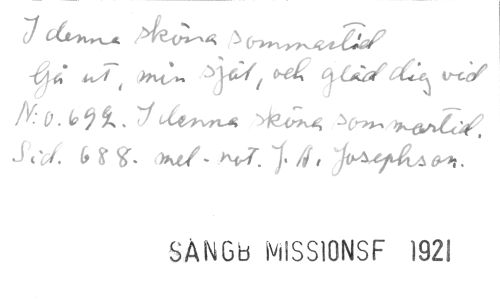 I denna sköna sommartid
Gå ut, min själ, och gläd dig vid
N:o. 692. I denna sköna sommartid.
Sid. 688. mel-not. J. A. Josephson.
SÅNGB MISSIONSF 1921